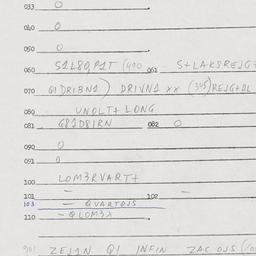 033 0
040 0
050 0
060 S1L8Q,P1T (410 061 S+LAKSREJG+
070 Q1DRIBN1) DRIVN1 xx (345) REJG+DL
080 UNOLT+ LONG
081 G81D8IRN 082 0
090 0
091 0
100 LOM3RVART+
101 - 102 -
103 - QVARTOJS
110 - QLOM3X
901 ZEJ1N Q1 INFIN ZAC OJS